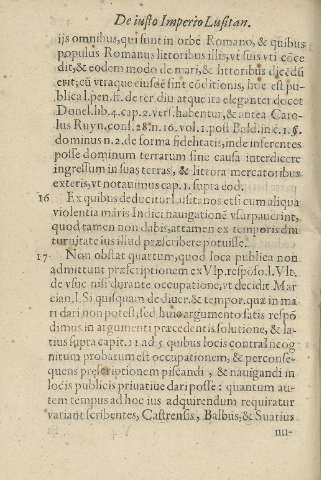 De iusto Imperio Lusitan.
ijs omnibus, qui sunt in orbe Romano, & quibus
populus Romanus littoribus illis, vt suis vti cōce
dit, & eodem modo de mari, & littoribus dicēdū
erit; cū vtraque eiusdē sint cōditionis, hoc est pu-
blica l. pen. ff. de rer. diu. atque ita eleganter docet
Donel. lib. 4. cap. 2. vers. habentur, & antea Caro-
lus Ruyn. cons. 28. n. 16. vol. 1. post Bald. in c. 1. §.
dominus n. 2. de forma fidelitatis, inde inferentes
posse dominum terrarum sine causa interdicere
ingressum in suas terras, & littora mercatoribus
exteris, vt notauimus cap. 1. supra eod.
16 Ex quibus deducitur Lusitanos etsi cum aliqua
violentia maris Indici nauigationē vsurpauerint,
quod tamen non dabis, attamen ex temporis diu
turnitate ius illud præscribere potuisse.
17. Non obstat quartum, quod loca publica non
admittunt præscriptionem ex Vlp. respōso. l. Vlt.
de vsuc. nisi durante occupatione, vt decidit Mar
cian. l. Si quisquam de diuer. & tempor. quæ in ma
ri dari non potest, sed huic argumento satis respō
dimus in argumenti præcedentis solutione, & la-
tius supra capit. 11. ad 5. quibus locis contra Incog
nitum probatum est occupationem, & per conse-
quens præscriptionem piscandi, & nauigandi in
locis publicis priuatiue dari posse: quantum au-
tem tempus ad hoc ius adquirendum requiratur
variant scribentes, Castrensis, Balbus, & Suarius
nu-